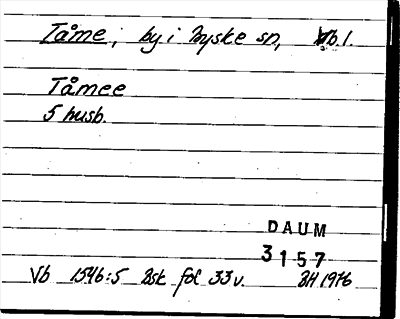 Tåme, by i Byske sn, Vb.l.
Tåmee
5 husb.
DAUM
3157
Vb 1546:5 Bsk fol 33v. BH 1976